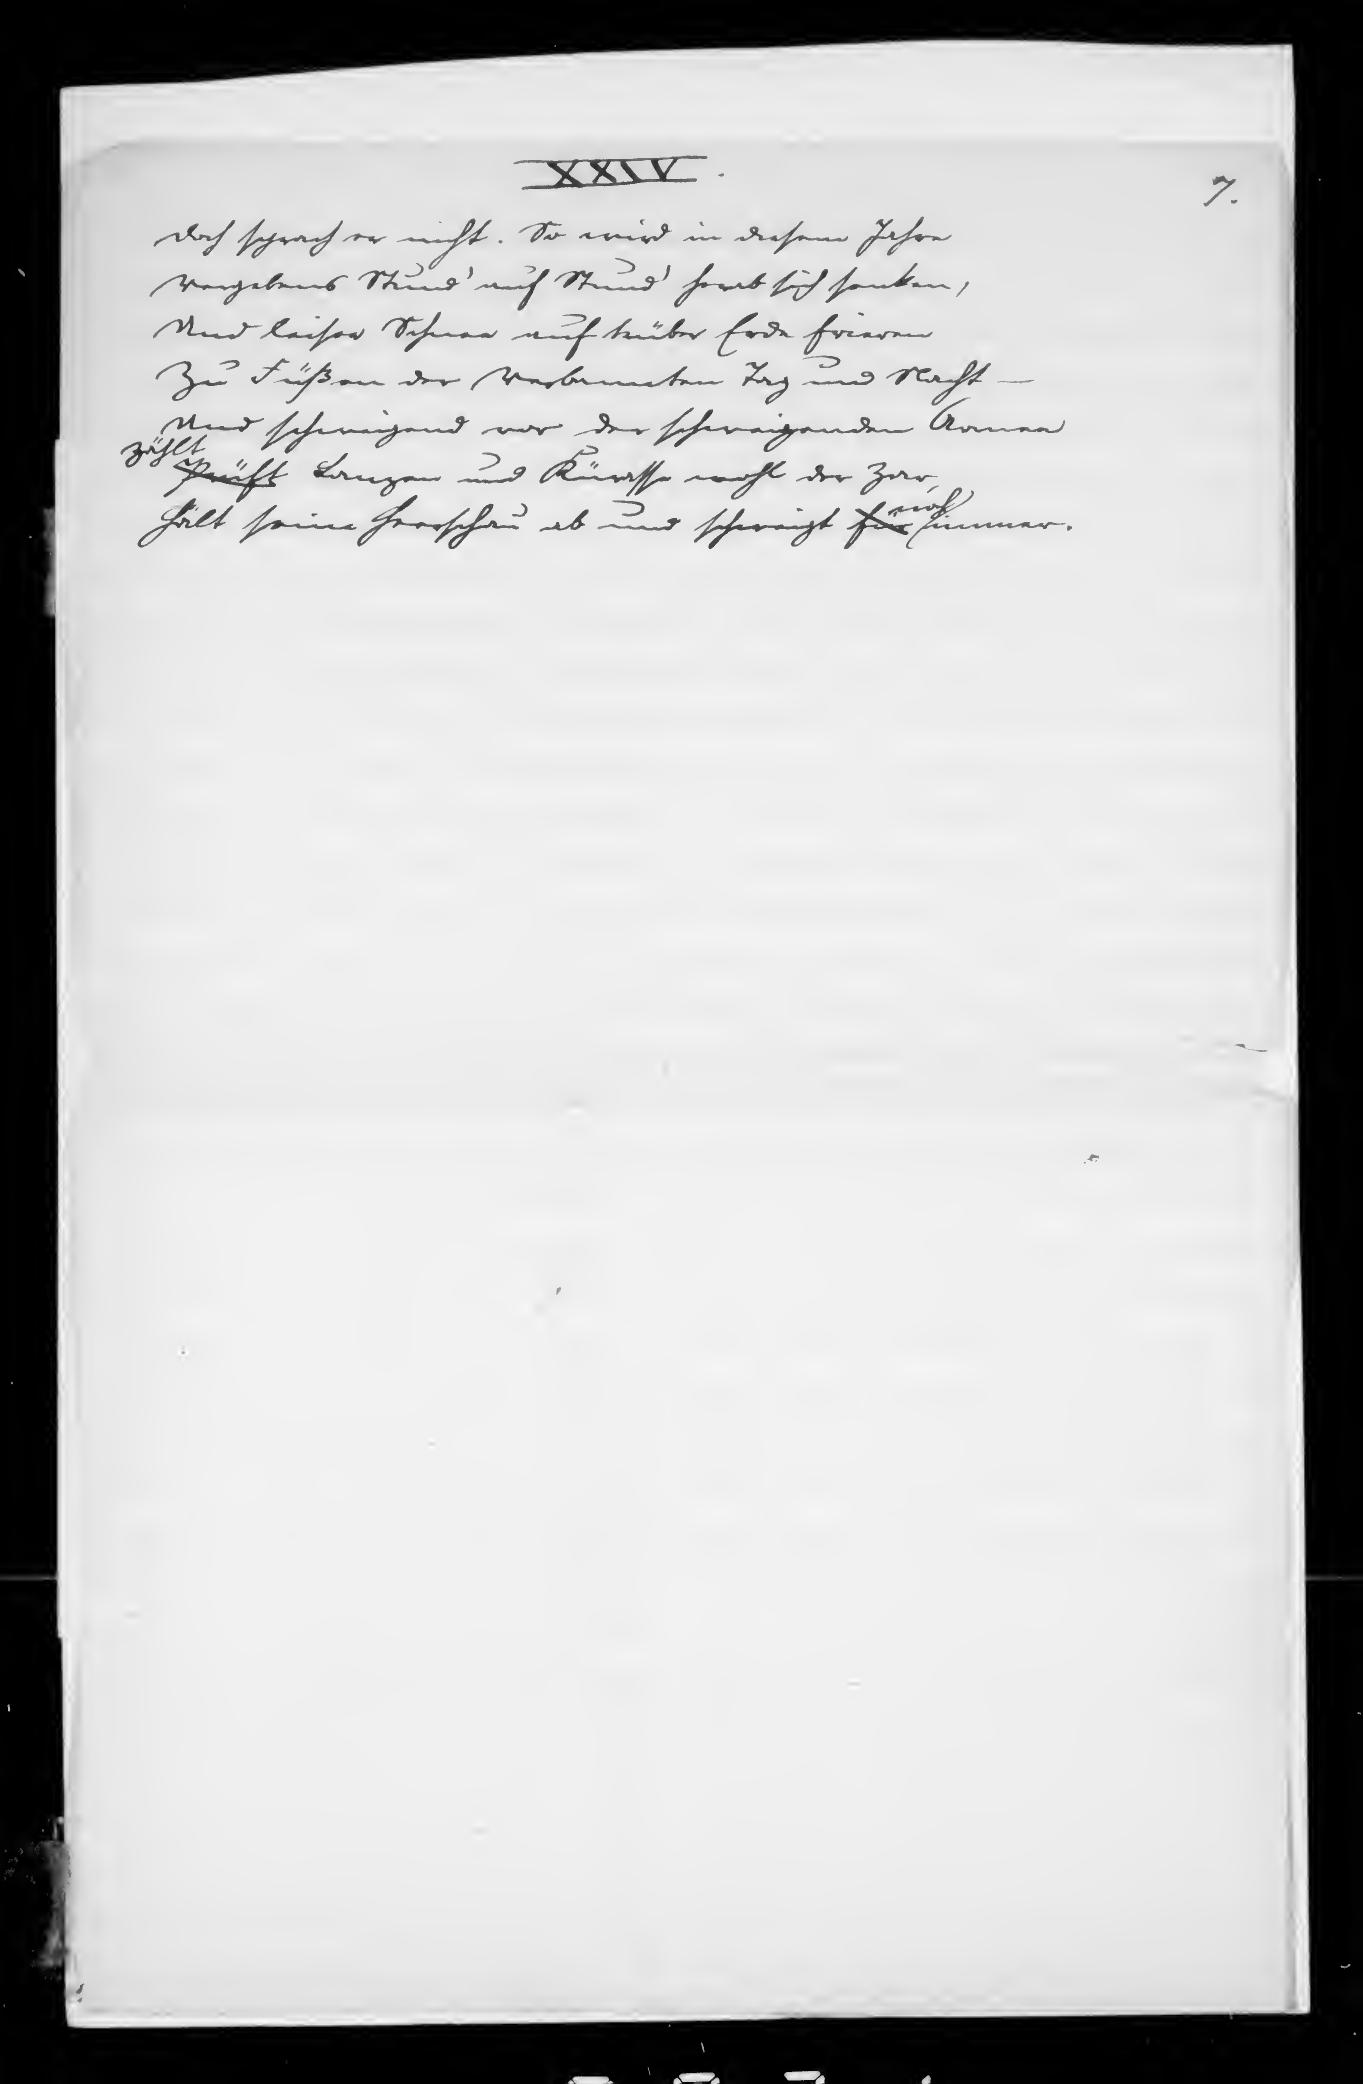 XXIV.
7.
Doch sprach er nicht. So wird in diesem Jahre
Vergebens Stund' auf Stund' herab sich senken,
Und leiser Schnee auf trüber Erde frieren
Zu Füßen der Verbannten Tag und Nacht —
Und schweigend vor der schweigenden Armee
zählt
Prüft Lanzen und Kürasse wohl der Zar,
Hält seine Heerschau ab und schweigt für noch immer.